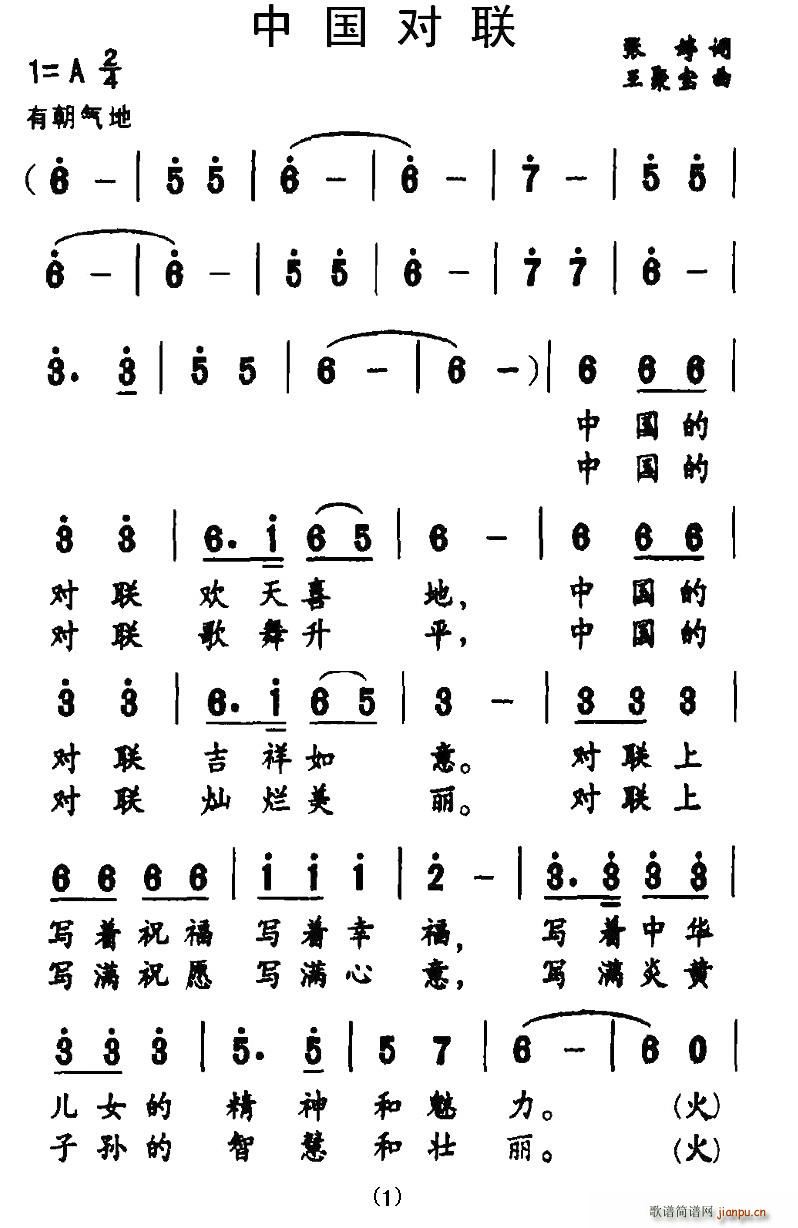 中国对联
张婷词
1=A 2/4
王聚宝曲
有朝气地
(6 - | 5 5 | 6 - | 6 - | 7 - | 5 5 |
6 - | 6 - | 5 5 | 6 - | 7 7 | 6 - |
3. 3 | 5 5 | 6 - | 6 -) | 6 6 6 |
中国的
中国的
3 3 | 6. 1 6 5 | 6 - | 6 6 6
对联欢天喜地，中国的
对联歌舞升平，中国的
3 3 | 6. 1 6 5 | 3 - | 3 3 3
对联吉祥如意。对联上
对联灿烂美丽。对联上
6 6 6 6 | 1 1 1 | 2 - | 3. 3 3 3 |
写着祝福写着幸福，写着中华
写满祝愿写满心意，写满炎黄
3 3 3 | 5. 5 | 5 7 | 6 - | 6 0 |
儿女的精神和魅力。(火)
子孙的智慧和壮丽。(火)
(1)
歌谱简谱网 jianpu.cn